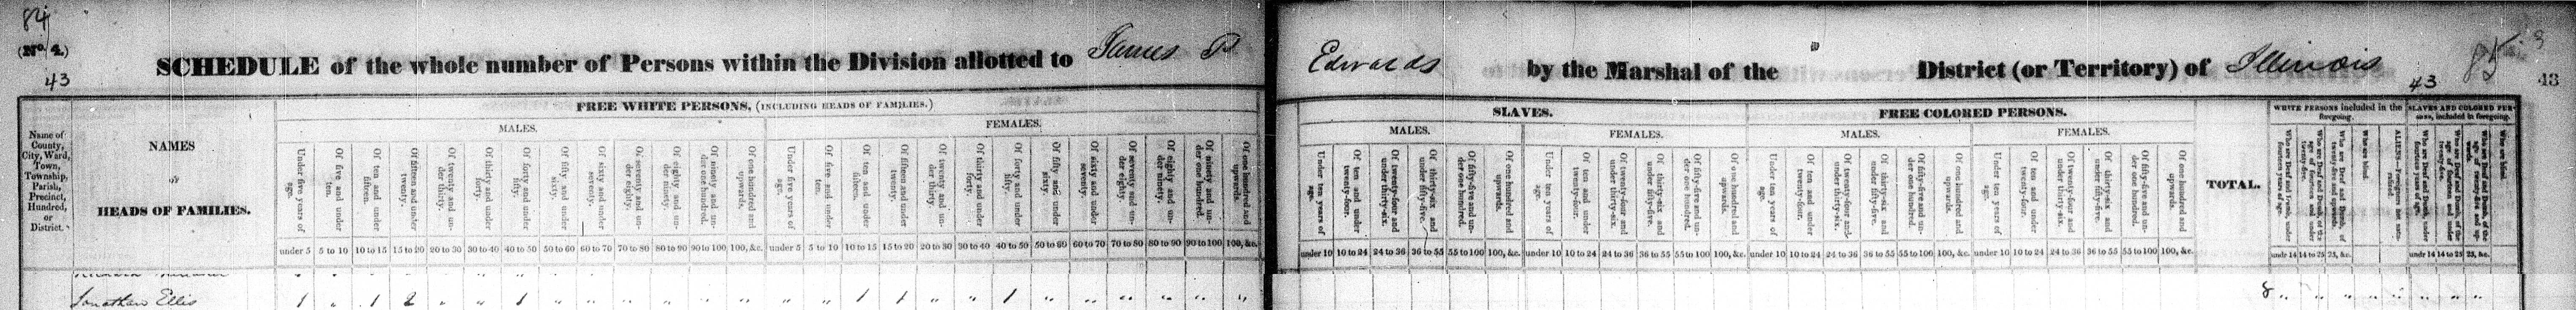 84
(No. 4.)
43
SCHEDULE of the whole number of Persons within the Division allotted to James P Edwards by the Marshal of the District (or Territory) of Illinois
43 85 43
Name of County, City, Ward, Town, Township, Parish, Precinct, Hundred, or District.
NAMES
OF
HEADS OF FAMILIES.
FREE WHITE PERSONS, (INCLUDING HEADS OF FAMILIES.)
MALES.
Under five years of age.
Of five and under ten.
Of ten and under fifteen.
Of fifteen and under twenty.
Of twenty and under thirty.
Of thirty and under forty.
Of forty and under fifty.
Of fifty and under sixty.
Of sixty and under seventy.
Of seventy and under eighty.
Of eighty and under ninety.
Of ninety and under one hundred.
Of one hundred and upwards.
under 5 5 to 10 10 to 15 15 to 20 20 to 30 30 to 40 40 to 50 50 to 60 60 to 70 70 to 80 80 to 90 90 to 100 100, &c.
FEMALES.
Under five years of age.
Of five and under ten.
Of ten and under fifteen.
Of fifteen and under twenty.
Of twenty and under thirty.
Of thirty and under forty.
Of forty and under fifty.
Of fifty and under sixty.
Of sixty and under seventy.
Of seventy and under eighty.
Of eighty and under ninety.
Of ninety and under one hundred.
Of one hundred and upwards.
under 5 5 to 10 10 to 15 15 to 20 20 to 30 30 to 40 40 to 50 50 to 60 60 to 70 70 to 80 80 to 90 90 to 100 100, &c.
SLAVES.
MALES.
Under ten years of age.
Of ten and under twenty-four.
Of twenty-four and under thirty-six.
Of thirty-six and under fifty-five.
Of fifty-five and under one hundred.
Of one hundred and upwards.
under 10 10 to 24 24 to 36 36 to 55 55 to 100 100, &c.
FEMALES.
Under ten years of age.
Of ten and under twenty-four.
Of twenty-four and under thirty-six.
Of thirty-six and under fifty-five.
Of fifty-five and under one hundred.
Of one hundred and upwards.
under 10 10 to 24 24 to 36 36 to 55 55 to 100 100, &c.
FREE COLORED PERSONS.
MALES.
Under ten years of age.
Of ten and under twenty-four.
Of twenty-four and under thirty-six.
Of thirty-six and under fifty-five.
Of fifty-five and under one hundred.
Of one hundred and upwards.
under 10 10 to 24 24 to 36 36 to 55 55 to 100 100, &c.
FEMALES.
Under ten years of age.
Of ten and under twenty-four.
Of twenty-four and under thirty-six.
Of thirty-six and under fifty-five.
Of fifty-five and under one hundred.
Of one hundred and upwards.
under 10 10 to 24 24 to 36 36 to 55 55 to 100 100, &c.
TOTAL.
WHITE PERSONS included in the foregoing.
Who are Deaf and Dumb, under fourteen years of age.
Who are Deaf and Dumb, of the age of fourteen and under twenty-five.
Who are Deaf and Dumb, of twenty-five and upwards.
Who are blind.
ALIENS—Foreigners not naturalized.
undr 14 14 to 25 25, &c.
SLAVES AND COLORED PERSONS, included in foregoing.
Who are Deaf and Dumb, under fourteen years of age.
Who are Deaf and Dumb, of the age of fourteen and under twenty-five.
Who are Deaf and Dumb, of the age of twenty-five and upwards.
Who are blind.
undr 14 14 to 25 25, &c.
Jonathan Ellis 1 " 1 2 " " 1 " " " " " " " " 1 1 " " 1 " " " " " " 8 " " " " " " " "